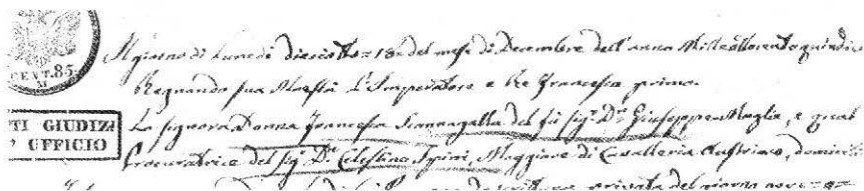 CENT. 85
Il giorno di Lunedì dieciotto = 18 = del mese di Decembre dell'anno Milleottocentoquindici
Regnando sua Maestà L'Imperatore e Re Francesco primo.
TI GIUDIZI
UFFICIO
La signora Donna Francesca del fù sig.r D.n Giuseppe Maglia, e qual
Procuratrice del sig.r D.n Celestino Spini, Maggiore di Cavalleria Austriaco, domicili
privata del giorno nove = 9 =